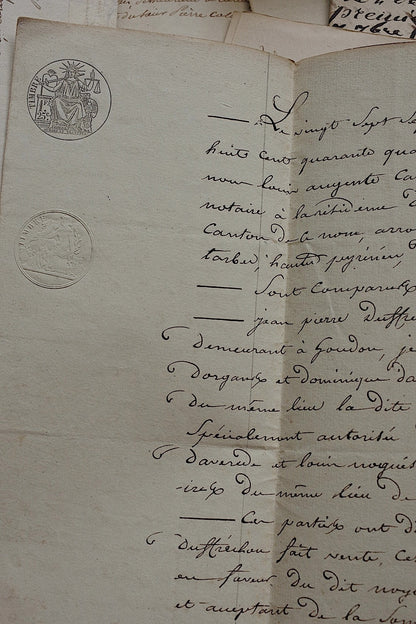 du sieur Pierre
TIMBRE
Le vingt Sept Se
huit cent quarante qua
nous louis augente Ca
notaire à la résidence D
Canton de ce nom, arro
tarbes, hautes pyrénées,
Sont Comparus
jean pierre Duffré
Demeurant à Goudon, je
Dorgans et dominique da
Du même lieu la dite
Spécialement autorisée
Daverede et louis noguès
-ires Du même lieu de
Ces parties ont d
Duffréchou fait vente, Ces
en faveur Du dit nog
et acceptant de la Som